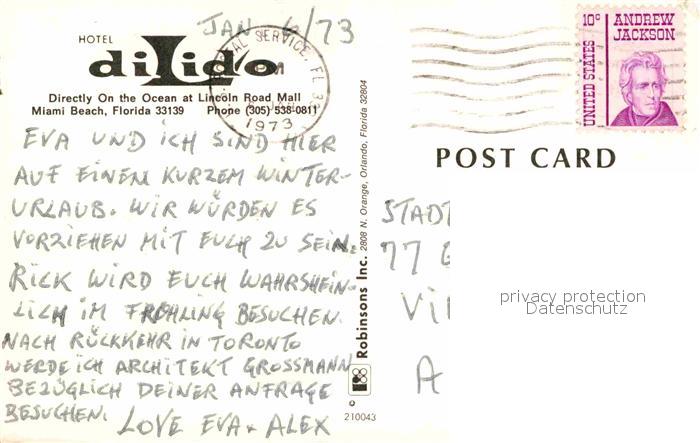 JAN 6/73
HOTEL
diLido
Directly On the Ocean at Lincoln Road Mall
Miami Beach, Florida 33139 Phone (305) 538-0811
POSTAL SERVICE, FL
PM
1973
10c ANDREW
JACKSON
UNITED STATES
POST CARD
EVA UND ICH SIND HIER
AUF EINEM KURZEM WINTER-
URLAUB. WIR WÜRDEN ES
VORZIEHEN MIT EUCH ZU SEIN.
RICK WIRD EUCH WAHRSHEIN-
LICH IM FRÜHLING BESUCHEN.
NACH RÜCKKEHR IN TORONTO
WERDE ICH ARCHITEKT GROSSMANN
BEZÜGLICH DEINER ANFRAGE
BESUCHEN.
LOVE EVA + ALEX
Robinsons Inc. 2808 N. Orange, Orlando, Florida 32804
©
210043
STADT
77
VIL
A
privacy protection
Datenschutz